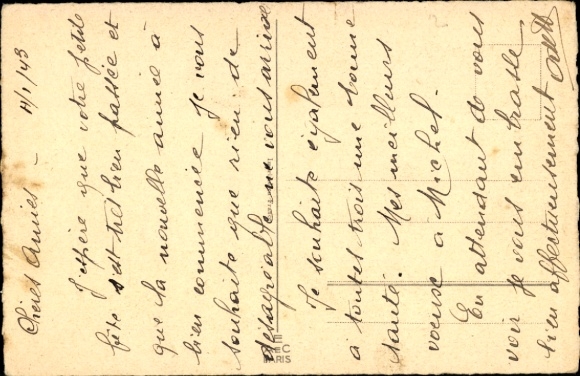 Chères Amies — 4/1/43
J'espère que votre petite
fête s'est très bien passée et
que la nouvelle année à
bien commencée. Je vous
souhaite que rien de
désagréable ne vous arrive
Je souhaite également
à toutes trois une bonne
santé. Mes meilleurs
voeux à Michel.
En attendant de vous
voir je vous embrasse
bien affectueusement
PARIS